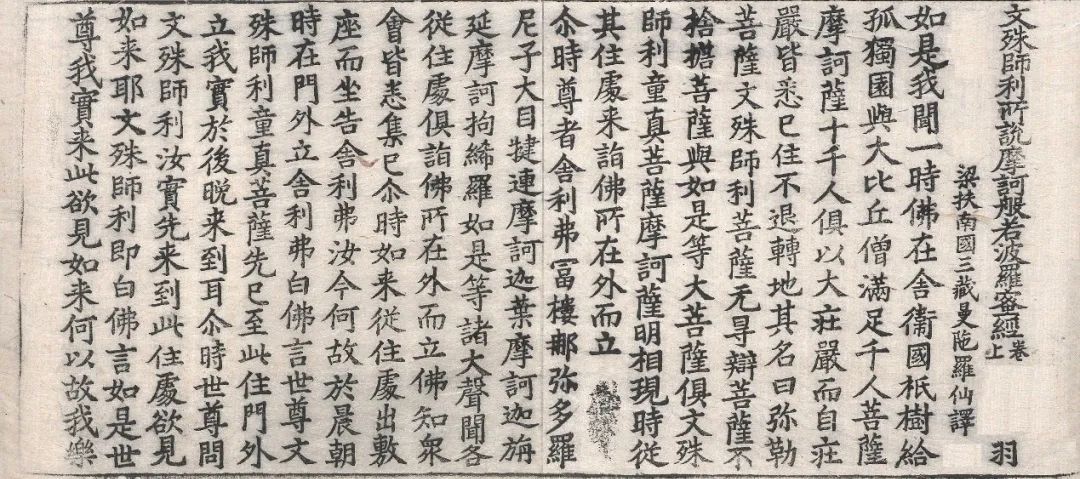 文殊師利所說摩訶般若波羅蜜經卷上 羽
梁扶南國三藏曼陁羅仙譯
如是我聞一時佛在舍衞國祇樹給
孤獨園與大比丘僧滿足千人菩薩
摩訶薩十千人俱以大莊嚴而自莊
嚴皆悉已住不退轉地其名曰弥勒
菩薩文殊師利菩薩无㝵辯菩薩不
捨擔菩薩與如是等大菩薩俱文殊
師利童真菩薩摩訶薩明相現時從
其住處来詣佛所在外而立
尒時尊者舍利弗冨樓那弥多羅
尼子大目揵連摩訶迦葉摩訶迦旃
延摩訶拘絺羅如是等諸大聲聞各
從住處俱詣佛所在外而立佛知衆
會皆悉集已尒時如来從住處出敷
座而坐告舍利弗汝今何故於晨朝
時在門外立舍利弗白佛言世尊文
殊師利童真菩薩先已至此住門外
立我實於後晚来到耳尒時世尊問
文殊師利汝實先来到此住處欲見
如来耶文殊師利即白佛言如是世
尊我實来此欲見如来何以故我樂